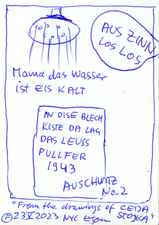 AUS ZINN
LOS LOS
Mama das Wasser
ist EIS KALT
AN DISE BLECH
KISTE DA LAG
DAS LEUSS
PULLFER
1943
AUSCHWITZ
No. 2
"From the drawings of CEIJA
STOJKA"
23 2023 NYC